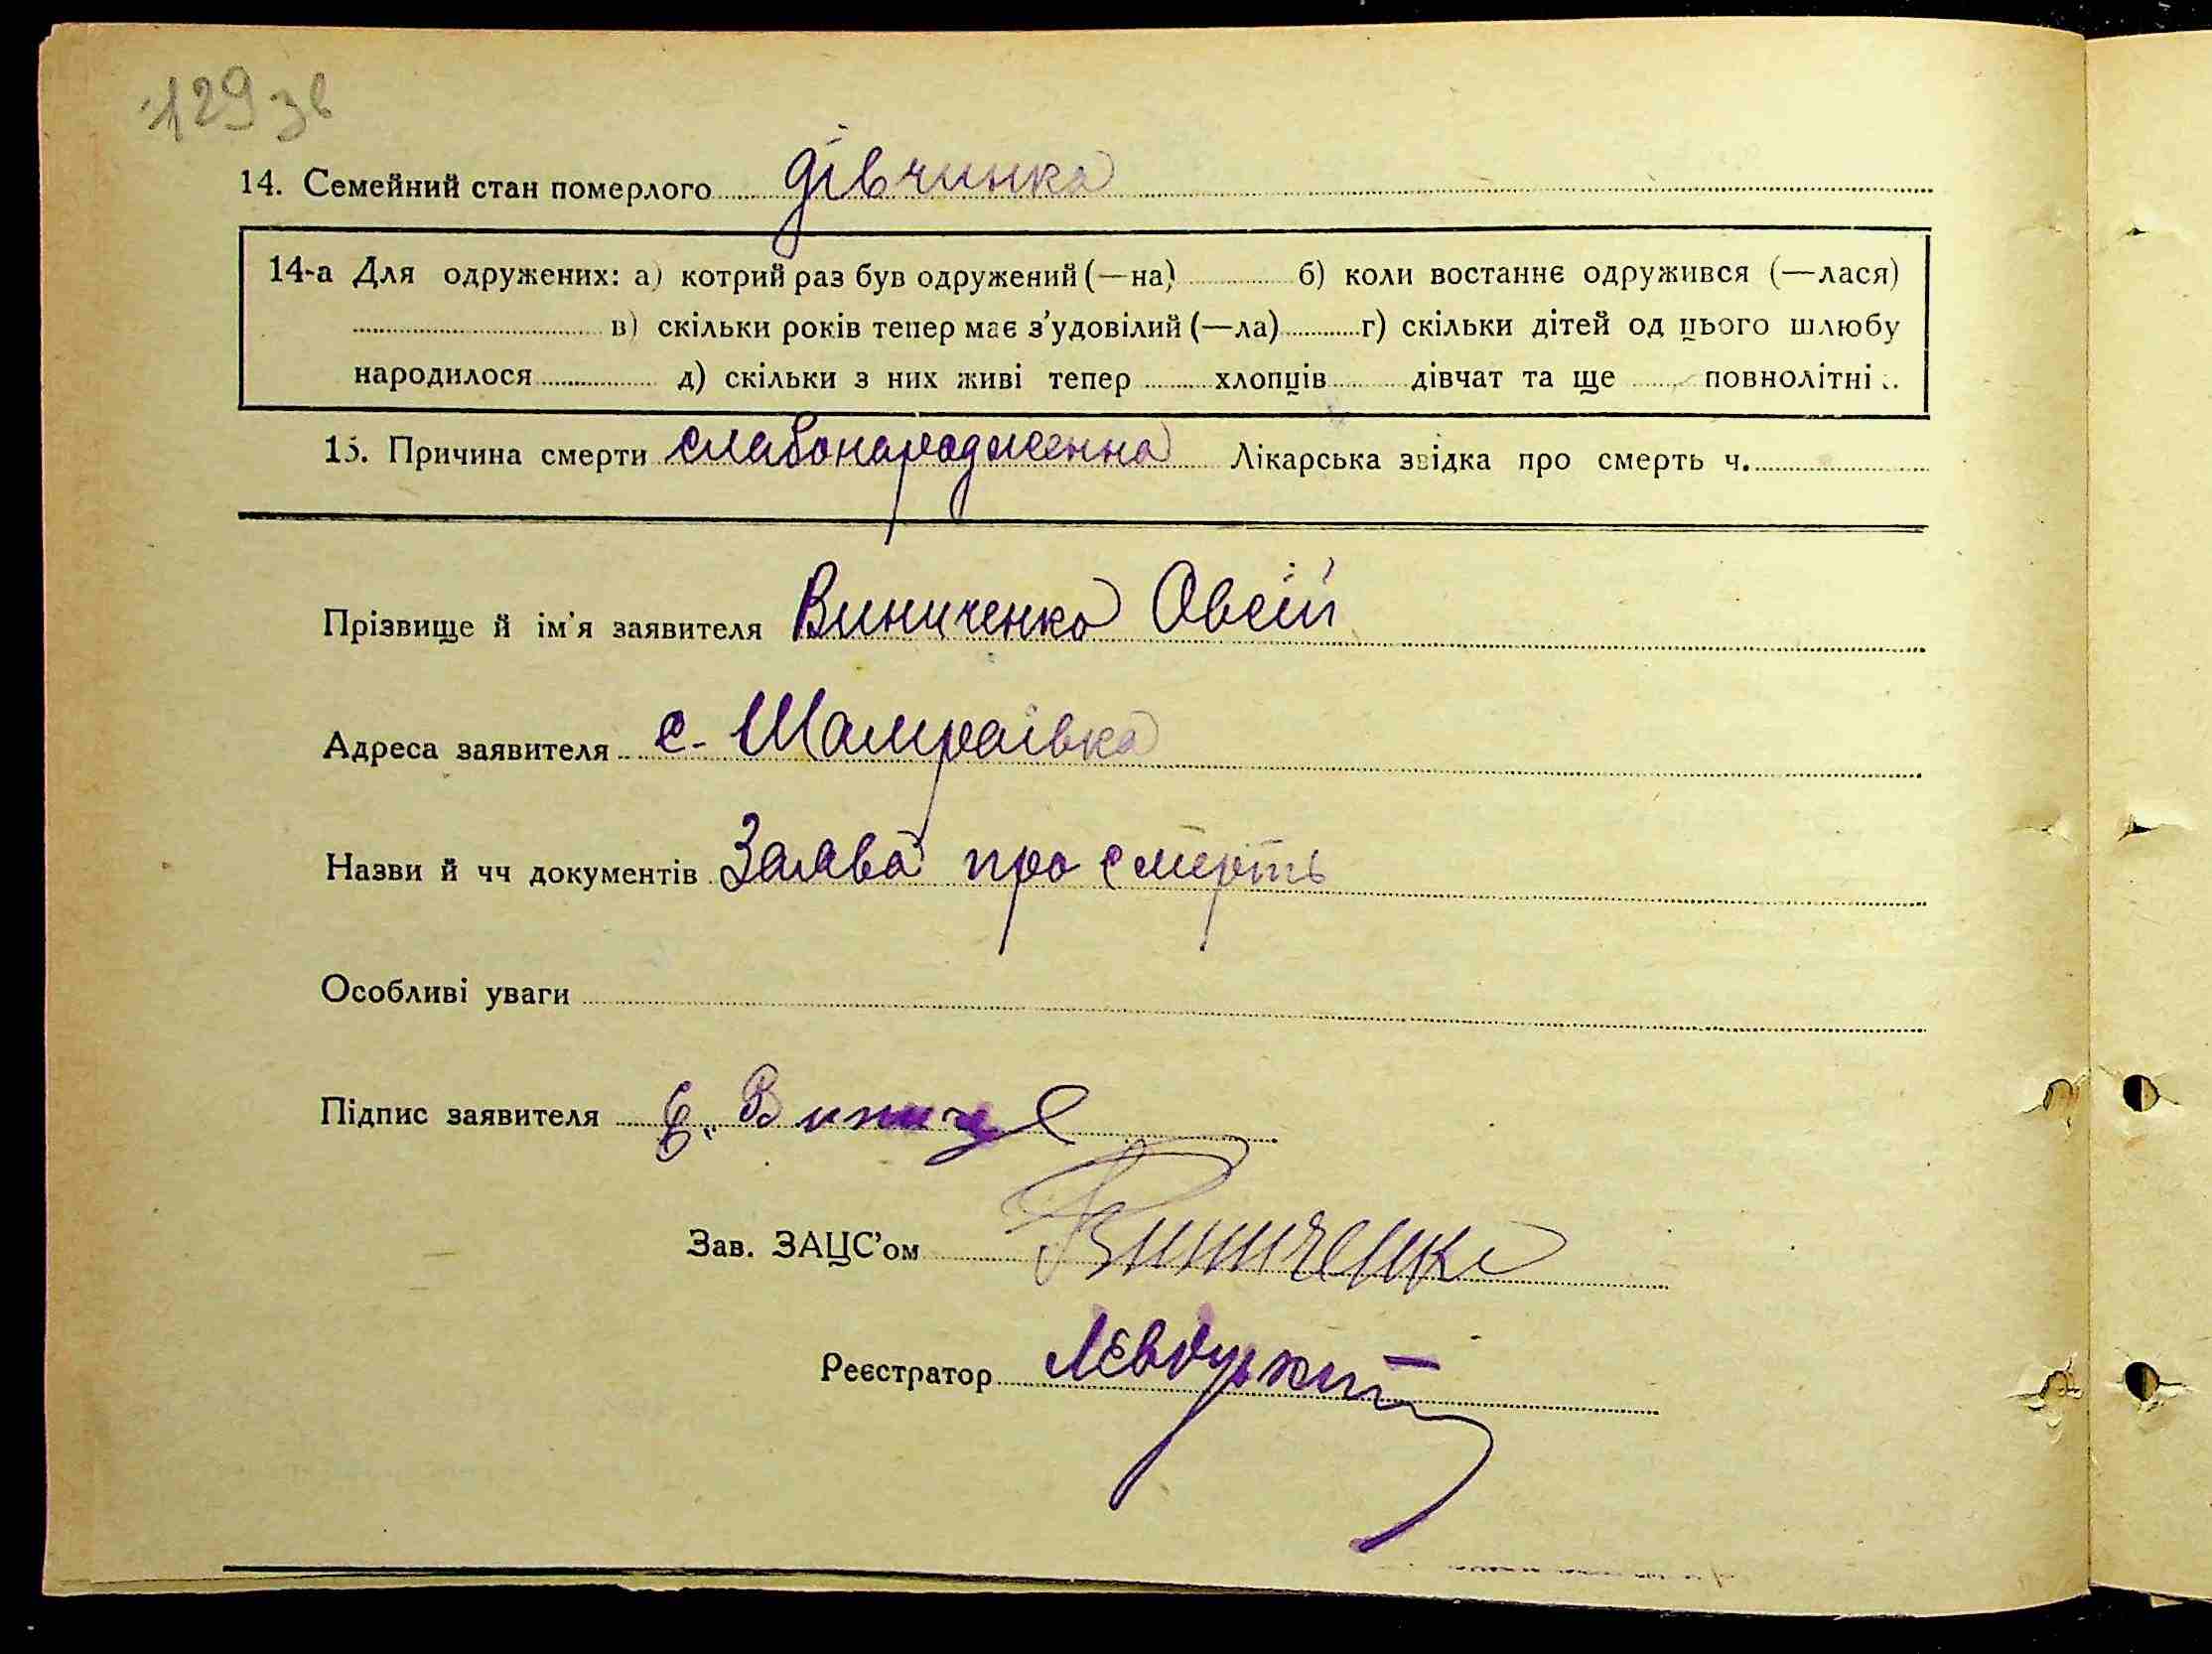 129 зв
14. Семейний стан померлого дівчинка
14-а Для одружених: а) котрий раз був одружений (—на) б) коли востаннє одружився (—лася)
в) скільки років тепер має з’удовілий (—ла) г) скільки дітей од цього шлюбу
народилося д) скільки з них живі тепер хлопців дівчат та ще повнолітні
15. Причина смерти слабонародженна Лікарська звідка про смерть ч.
Прізвище й ім'я заявителя Виниченко Овсій
Адреса заявителя с. Шамраівка
Назви й чч документів Заява про смерть
Особливі уваги
Підпис заявителя Є. Винич
Зав. ЗАЦС’ом Виниченко
Реєстратор